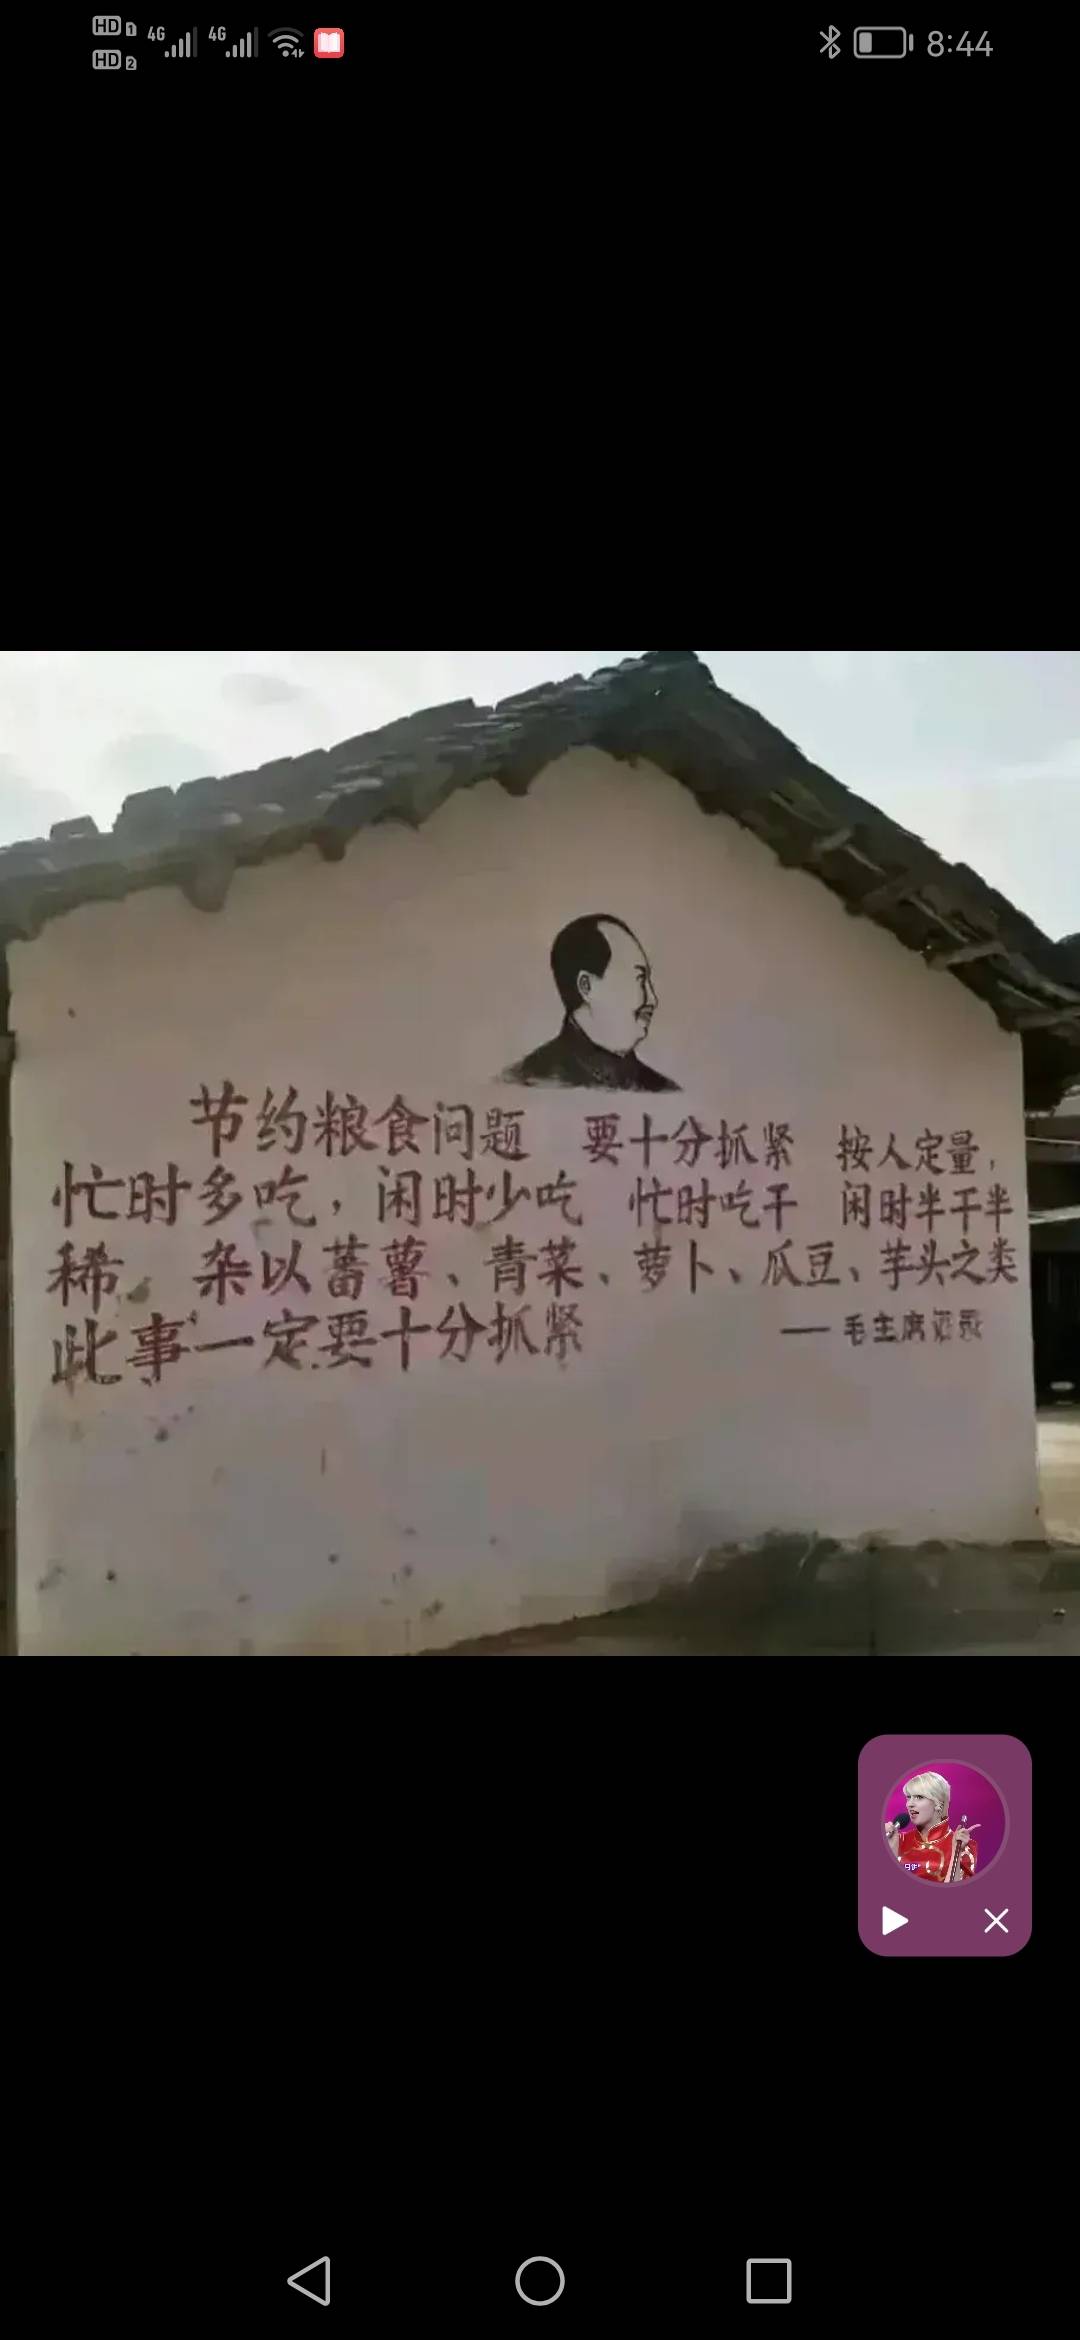 HD 1 4G 4G 8:44
HD 2
节约粮食问题 要十分抓紧 按人定量,
忙时多吃,闲时少吃 忙时吃干 闲时半干半
稀。杂以蕃薯、青菜、萝卜、瓜豆、芋头之类
此事一定要十分抓紧
——毛主席语录